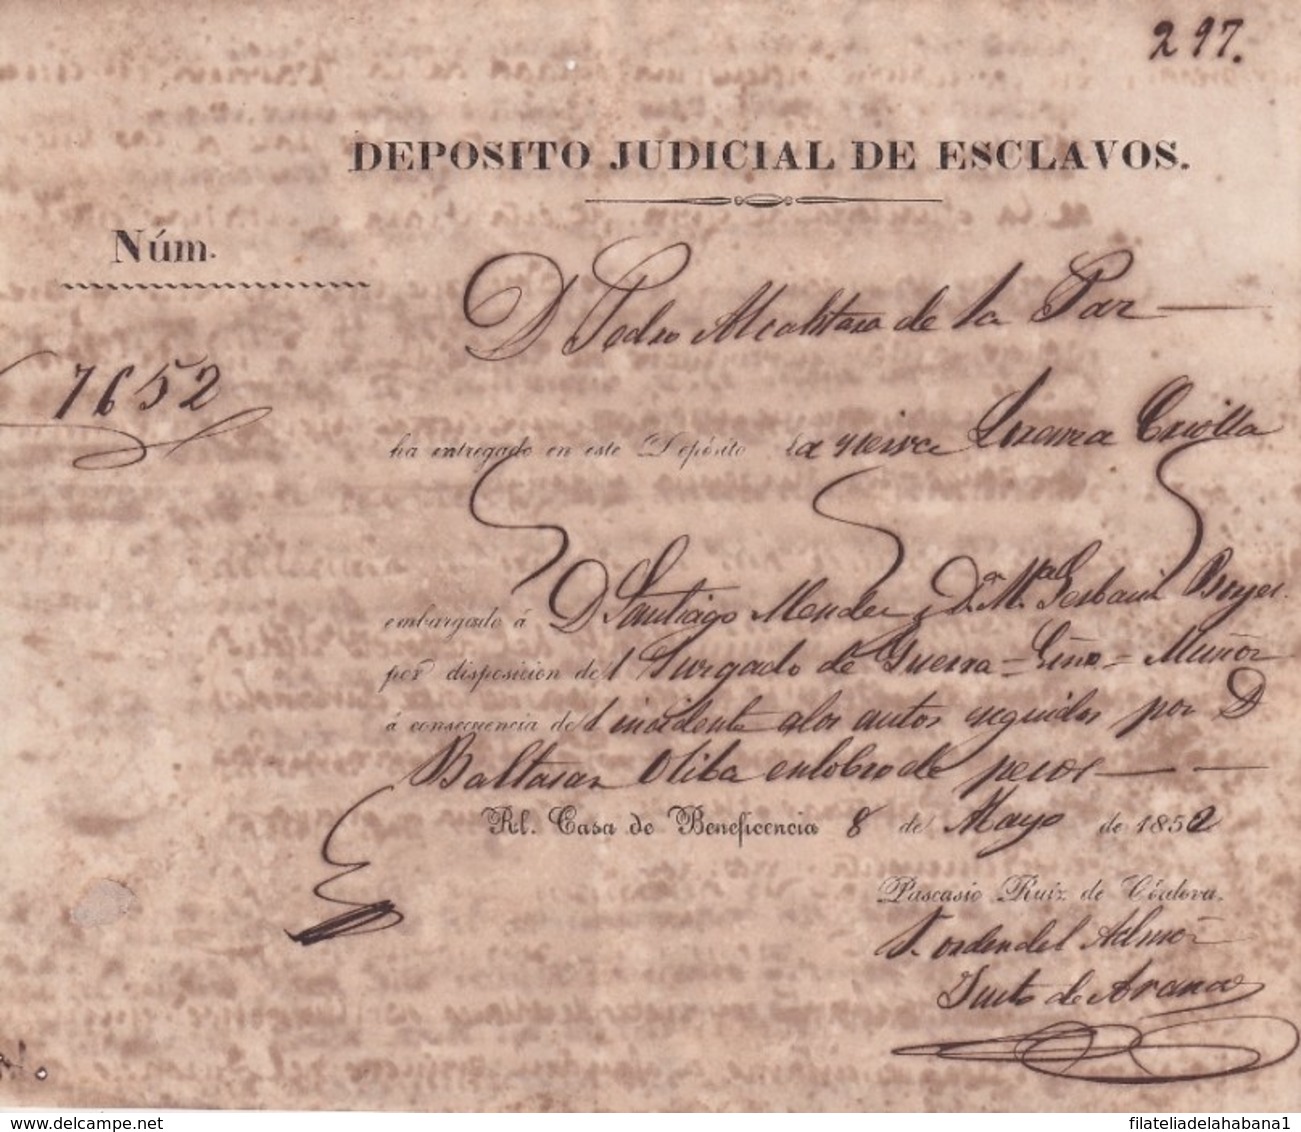 297.
DEPOSITO JUDICIAL DE ESCLAVOS.
Núm.
7652
D Pedro Alcantara de la Paz
ha entregado en este Depósito la negra Lorenza Criolla
embargado á D Santiago Mendez y Dn. Ma.
por disposicion del Jusgado de Guerra = Esno = Muñoz
á consecuencia del incidente alos autos seguidos por D
Baltasar Oliba en cobro de pesos
Rl. Casa de Beneficencia 8 de Mayo de 1852
Pascasio Ruiz de Córdova.
P. orden del Admor
Justo de Arana
filateliadelahabana1